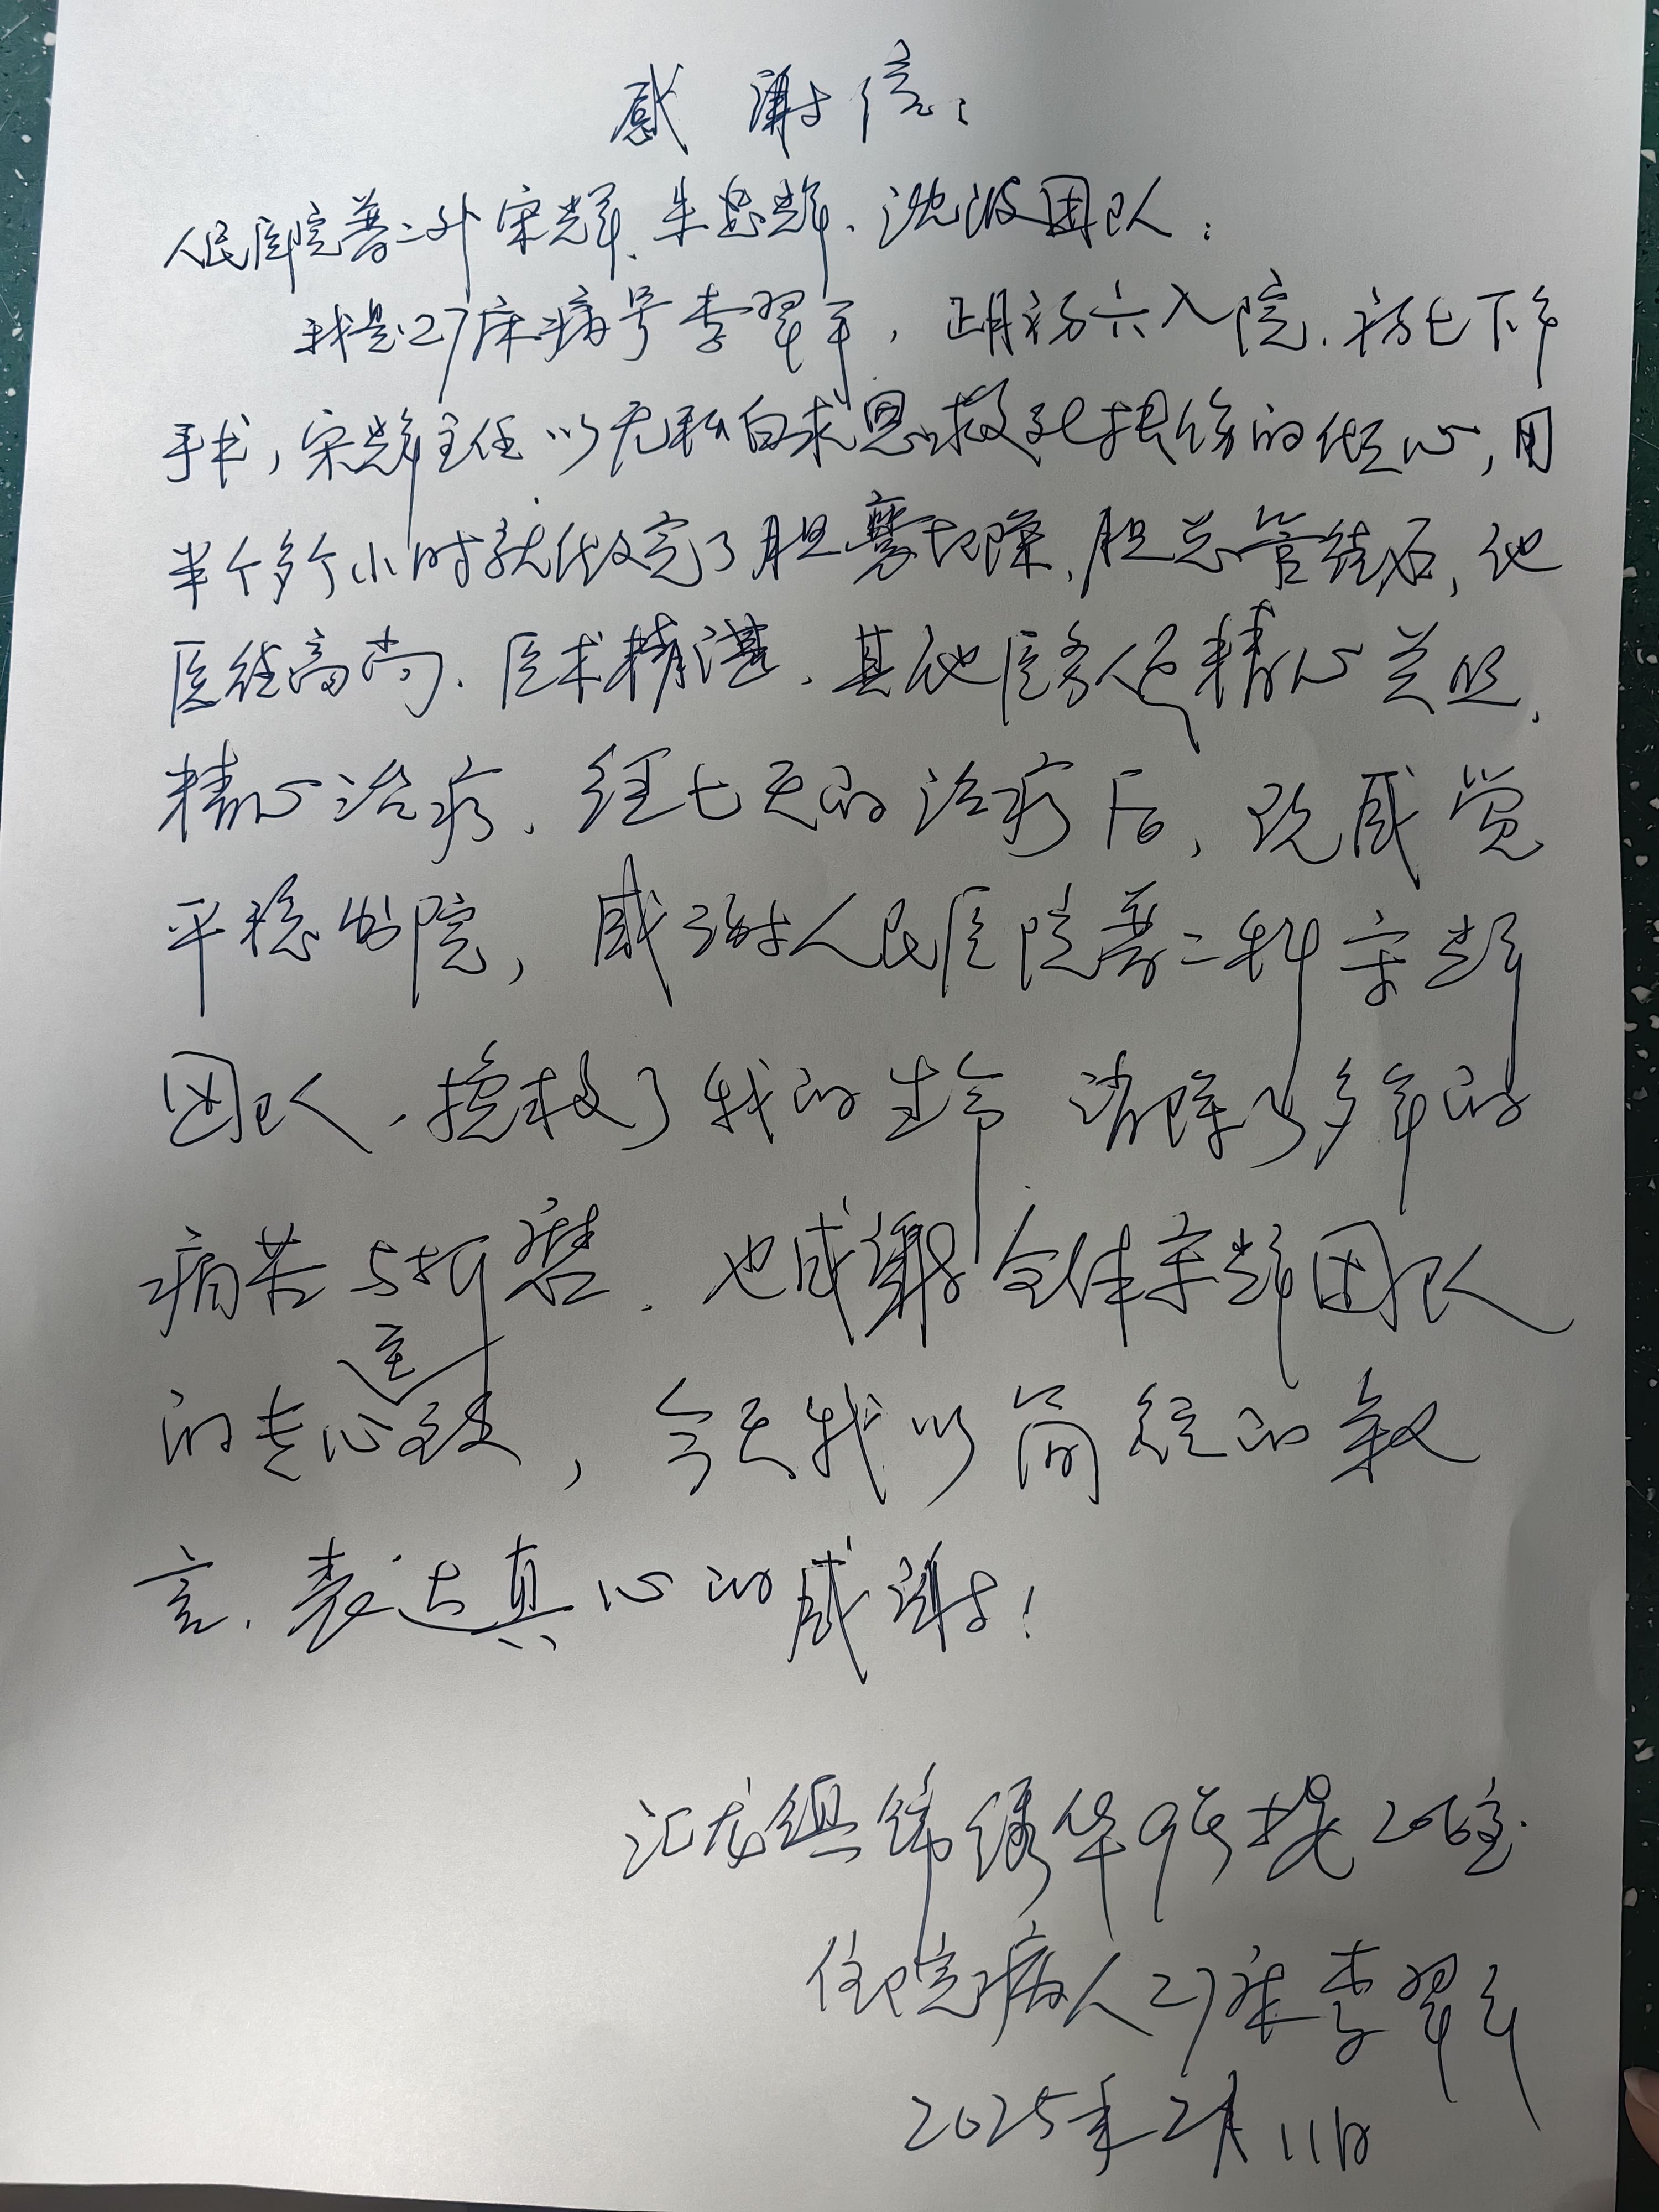 感谢信:
人民医院普二外宋辉、朱忠辉、沈波团队:
我是27床病号李翠平,正月初六入院.初七下午
手术,宋辉主任以无私白求恩救死扶伤的仁心,用
半个多个小时就做完了胆囊切除、胆总管结石,他
医德高尚.医术精湛.其他医务人员精心关照、
精心治疗.经七天的治疗后,现感觉
平稳出院,感谢人民医院普二科宋辉
团队.挽救了我的生命 消除了多年的
病苦与折磨.也感谢全体宋辉团队
的专心医致,今天我以简短的叙
言.表达真心的感谢!
汇龙组锦绣华9号楼206室.
住院病人27床李翠平
2025年2月11日